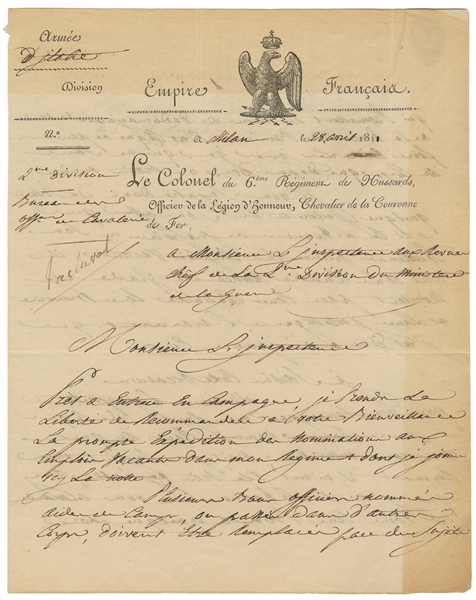 Armée
d'italie
Division
Empire Français.
N.o
a Milan le 28 avril 181
Le Colonel du 6.ème Régiment de Hussards,
Officier de la Légion d'Honneur, Chevalier de la Couronne
de Fer,
2me Division
Bureau des
offrs de Cavalerie
a Monsieur L'inspecteur aux Revues
chef de La 2me Division du Ministere
de la Guerre
Monsieur L'inspecteur
Pret a Entrer En Campagne, je Prends La
Liberté de Recommander a Votre Bienveillance
La prompte Expédition des Nominations aux
Emplois Vacants dans mon Régiment dont je joins
icy La notte
Plusieurs Bons officiers nommés
aides de Camps, ou passés dans d'autres
Corps, doivent Etre Remplacés par des Sujets